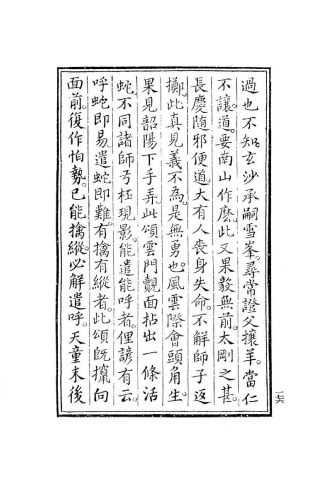 過也不知玄沙承嗣雪峯。尋常證父攘羊。當仁
不讓。道要南山作麼。此又果毅無前。太剛之甚。
長慶隨邪便道。大有人喪身失命。不解師子返
擲。此真見義不為。是無勇也。風雲際會頭角生。
果見韶陽下手弄。此頌雲門覿面拈出一條活
蛇。不同諸師弓桮現影。能遣能呼者。俚諺有云。
呼蛇即易。遣蛇即難。有擒有縱者。此頌既攛向
面前。復作怕勢。已能擒縱。必解遣呼。天童末後
一六